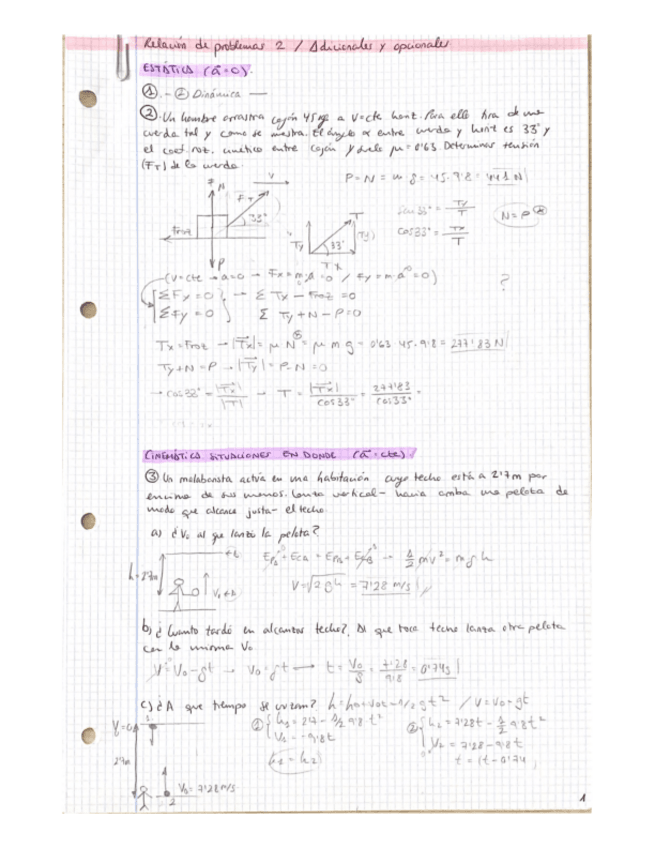 Relación de problemas 2 / Adicionales y opcionales
ESTÁTICA (a⃗=0).
① .- ② Dinámica —
② Un hombre arrastra cajón 45kg a V=cte hont. Para ello tira de una
cuerda tal y como se muestra. El ángulo α entre cuerda y hont es 33° y
el coef. roz. cinético entre cajón y suelo μ=0'63. Determinar tensión
(FT) de la cuerda.
P=N=m·g=45·9'8=441N
N
V
FT
33°
Froz
P
T
Ty
33°
Tx
(Ty)
sen33°=Ty/T
cos33°=Tx/T
N=P
(v=cte → a=0 → Fx=m·a=0 / Fy=m·a=0)
?
ΣFx=0 → Σ Tx - Froz=0
ΣFy=0 Σ Ty+N-P=0
Tx=Froz → |Tx|=μN=μmg=0'63·45·9'8=277'83N
Ty+N=P → |Ty|=P-N=0
→ cos33°=|Tx|/|T| → T=|Tx|/cos33°=277'83/cos33°=
CINEMÁTICA SITUACIONES EN DONDE (a⃗=cte)
③ Un malabarista actúa en una habitación cuyo techo está a 2'7m por
encima de sus manos. Lanza vertical- hacia arriba una pelota de
modo que alcance justa- el techo.
a) ¿V₀ al que lanzó la pelota?
h=2'7m
EpA+EcA=EpB+EcB → 1/2mv²=mgh
V=√2gh=7'28 m/s
b) ¿Cuanto tardó en alcanzar techo?. Al que toca techo lanza otra pelota
con la misma V₀
V=V₀-gt → V₀=gt → t=V₀/g=7'28/9'8=0'74s
c) ¿A que tiempo se cruzan? h=h₀+v₀t-1/2gt² / V=V₀-gt
① h₁=2'7-1/2 9'8t²
V₁=-9'8t
② h₂=7'28t-1/2 9'8t²
V₂=7'28-9'8t
h₁=h₂
V=0
1
2'7m
V₀=7'28m/s
2
1